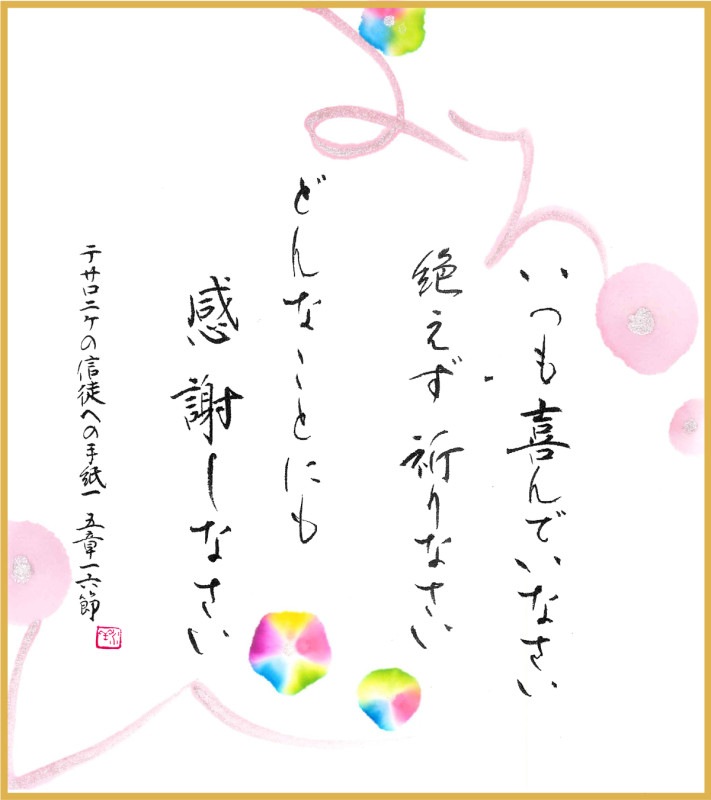 いつも喜んでいなさい
絶えず祈りなさい
どんなことにも
感謝しなさい
テサロニケの信徒への手紙一 五章一六節